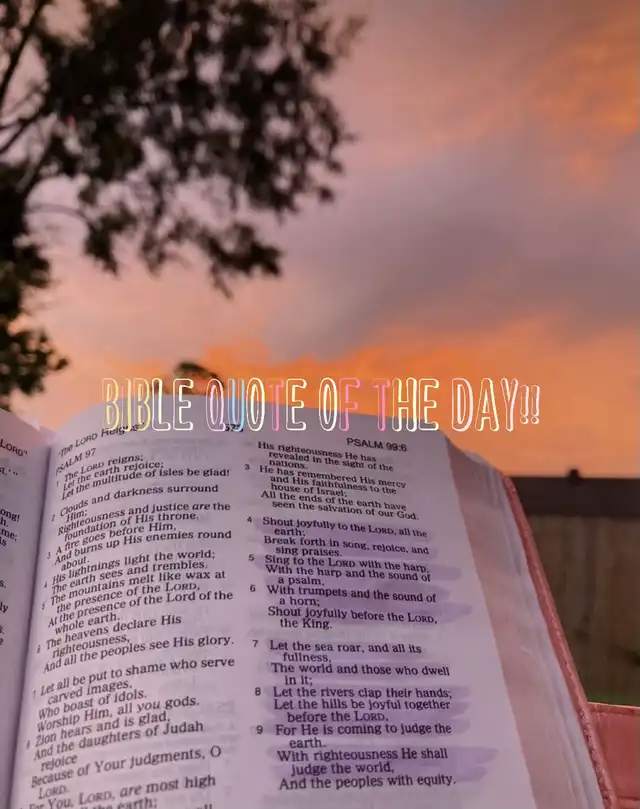 BIBLE QUOTE OF THE DAY!!
LORD"
"The LORD Reigns
PSALM 97
1 The LORD reigns;
Let the earth rejoice;
Let the multitude of isles be glad!
2 Clouds and darkness surround
Him;
Righteousness and justice are the
foundation of His throne.
3 A fire goes before Him,
And burns up His enemies round
about.
4 His lightnings light the world;
The earth sees and trembles.
5 The mountains melt like wax at
the presence of the LORD,
At the presence of the Lord of the
whole earth.
6 The heavens declare His
righteousness,
And all the peoples see His glory.
7 Let all be put to shame who serve
carved images,
Who boast of idols.
Worship Him, all you gods.
8 Zion hears and is glad,
And the daughters of Judah
rejoice
Because of Your judgments, O
LORD.
For You, LORD, are most high
the earth;
PSALM 99:6
His righteousness He has
revealed in the sight of the
nations.
3 He has remembered His mercy
and His faithfulness to the
house of Israel;
All the ends of the earth have
seen the salvation of our God.
4 Shout joyfully to the LORD, all the
earth;
Break forth in song, rejoice, and
sing praises.
5 Sing to the LORD with the harp,
With the harp and the sound of
a psalm,
6 With trumpets and the sound of
a horn;
Shout joyfully before the LORD,
the King.
7 Let the sea roar, and all its
fullness,
The world and those who dwell
in it;
8 Let the rivers clap their hands;
Let the hills be joyful together
before the LORD,
9 For He is coming to judge the
earth.
With righteousness He shall
judge the world,
And the peoples with equity.